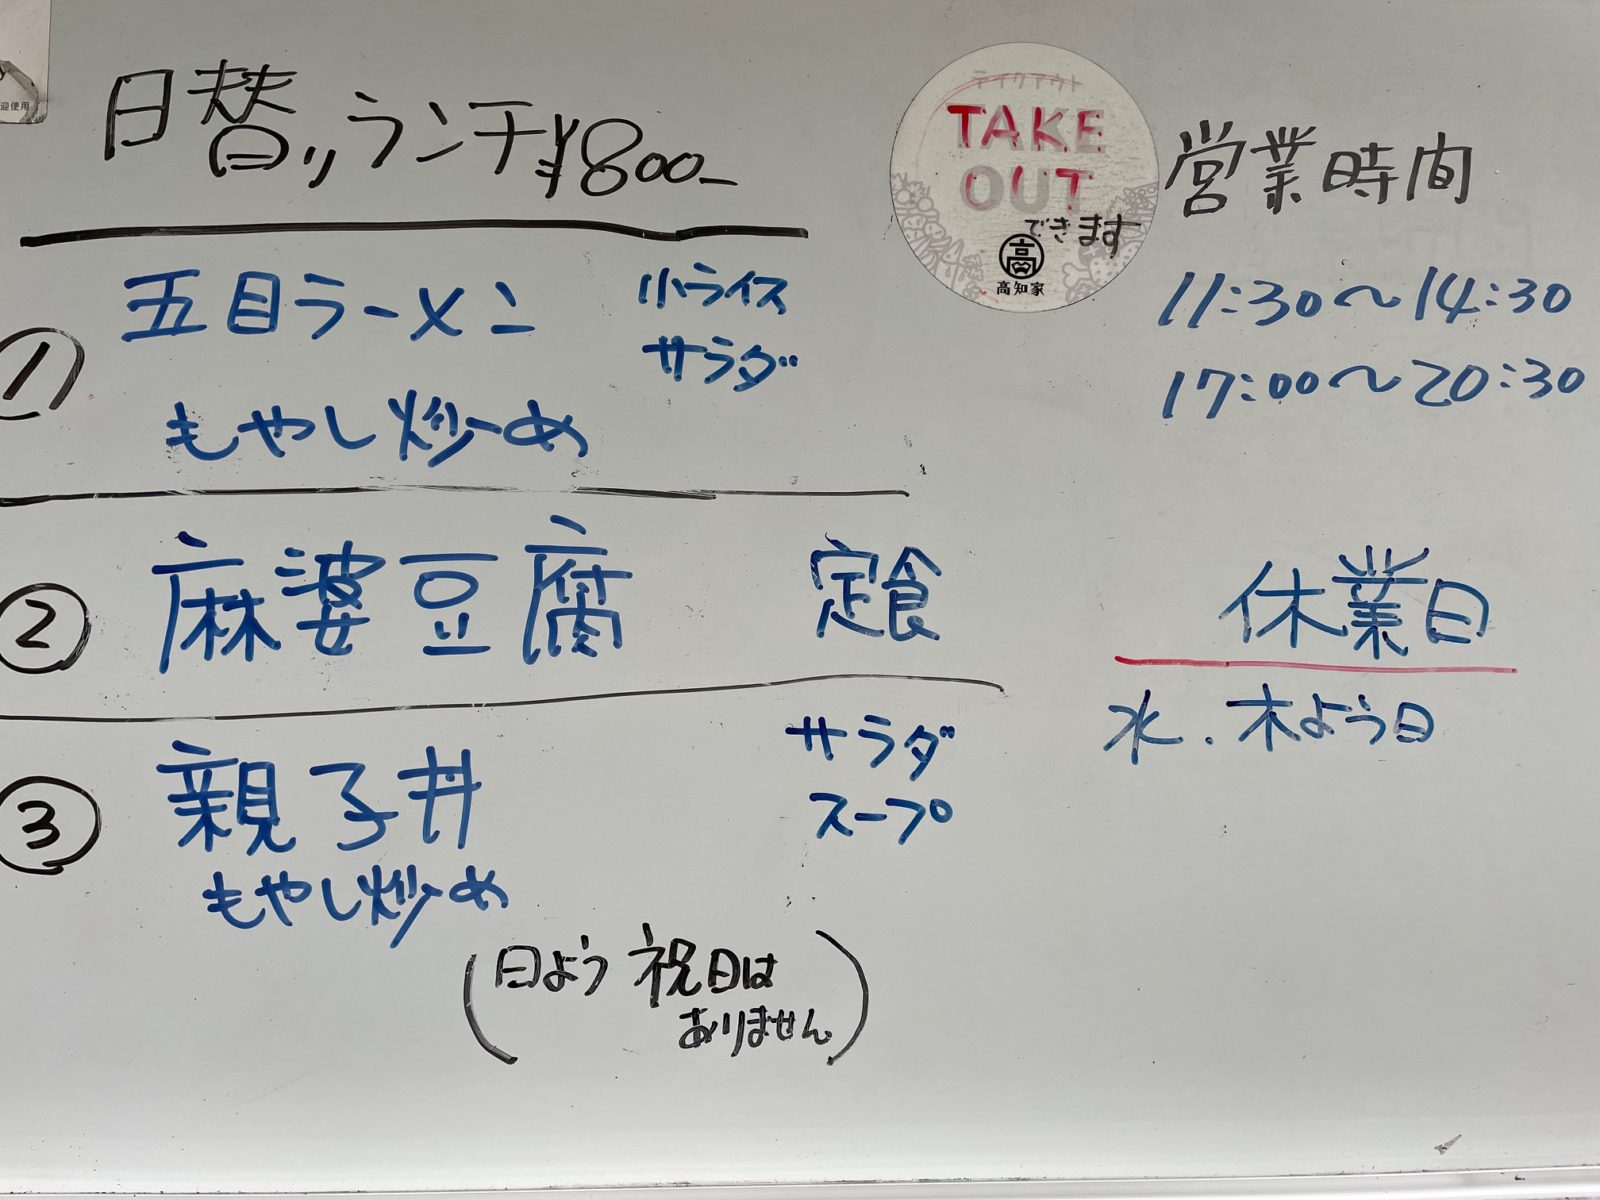 迎使用
日替りランチ¥800-
① 五目ラーメン 小ライス
サラダ
もやし炒め
② 麻婆豆腐 定食
③ 親子丼 サラダ
スープ
もやし炒め
(日よう 祝日は
ありません)
テイクアウト
TAKE
OUT
できます
高
高知家
営業時間
11:30〜14:30
17:00〜20:30
休業日
水.木よう日